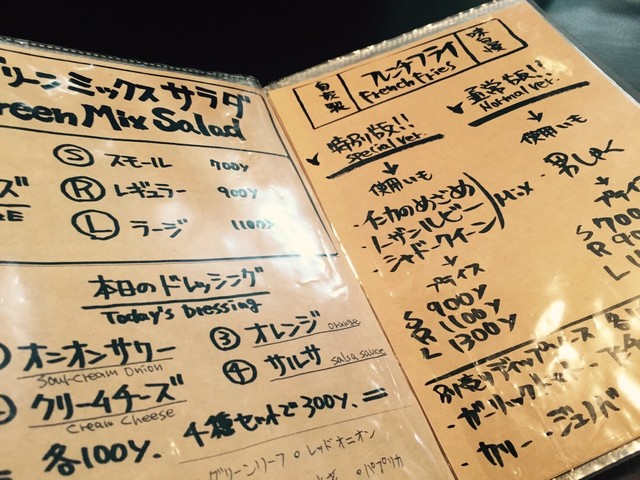 グリーンミックスサラダ
Green Mix Salad
S スモール 700y
R レギュラー 900y
L ラージ 1100y
本日のドレッシング
Today's Dressing
オニオンサワー
Sour cream onion
クリームチーズ
cream cheese
③ オレンジ orange
④ サルサ salsa sauce
各100y. 4種セットで300y.
グリーンリーフ・レッドオニオン
パプリカ
自家製
フレンチフライ
French Fries
味自慢
特別版!!
Special ver.
使用いも
・インカのめざめ
・ノーザンルビー
・シャドークイーン
Mix
プライス
S 900y
R 1100y
L 1300y
通常版!!
Normal ver.
使用いも
・男しゃく
プライス
S 700
R 90
L 1
別売りディップソース 各
・ガーリック
・カリー ・ジェノバ